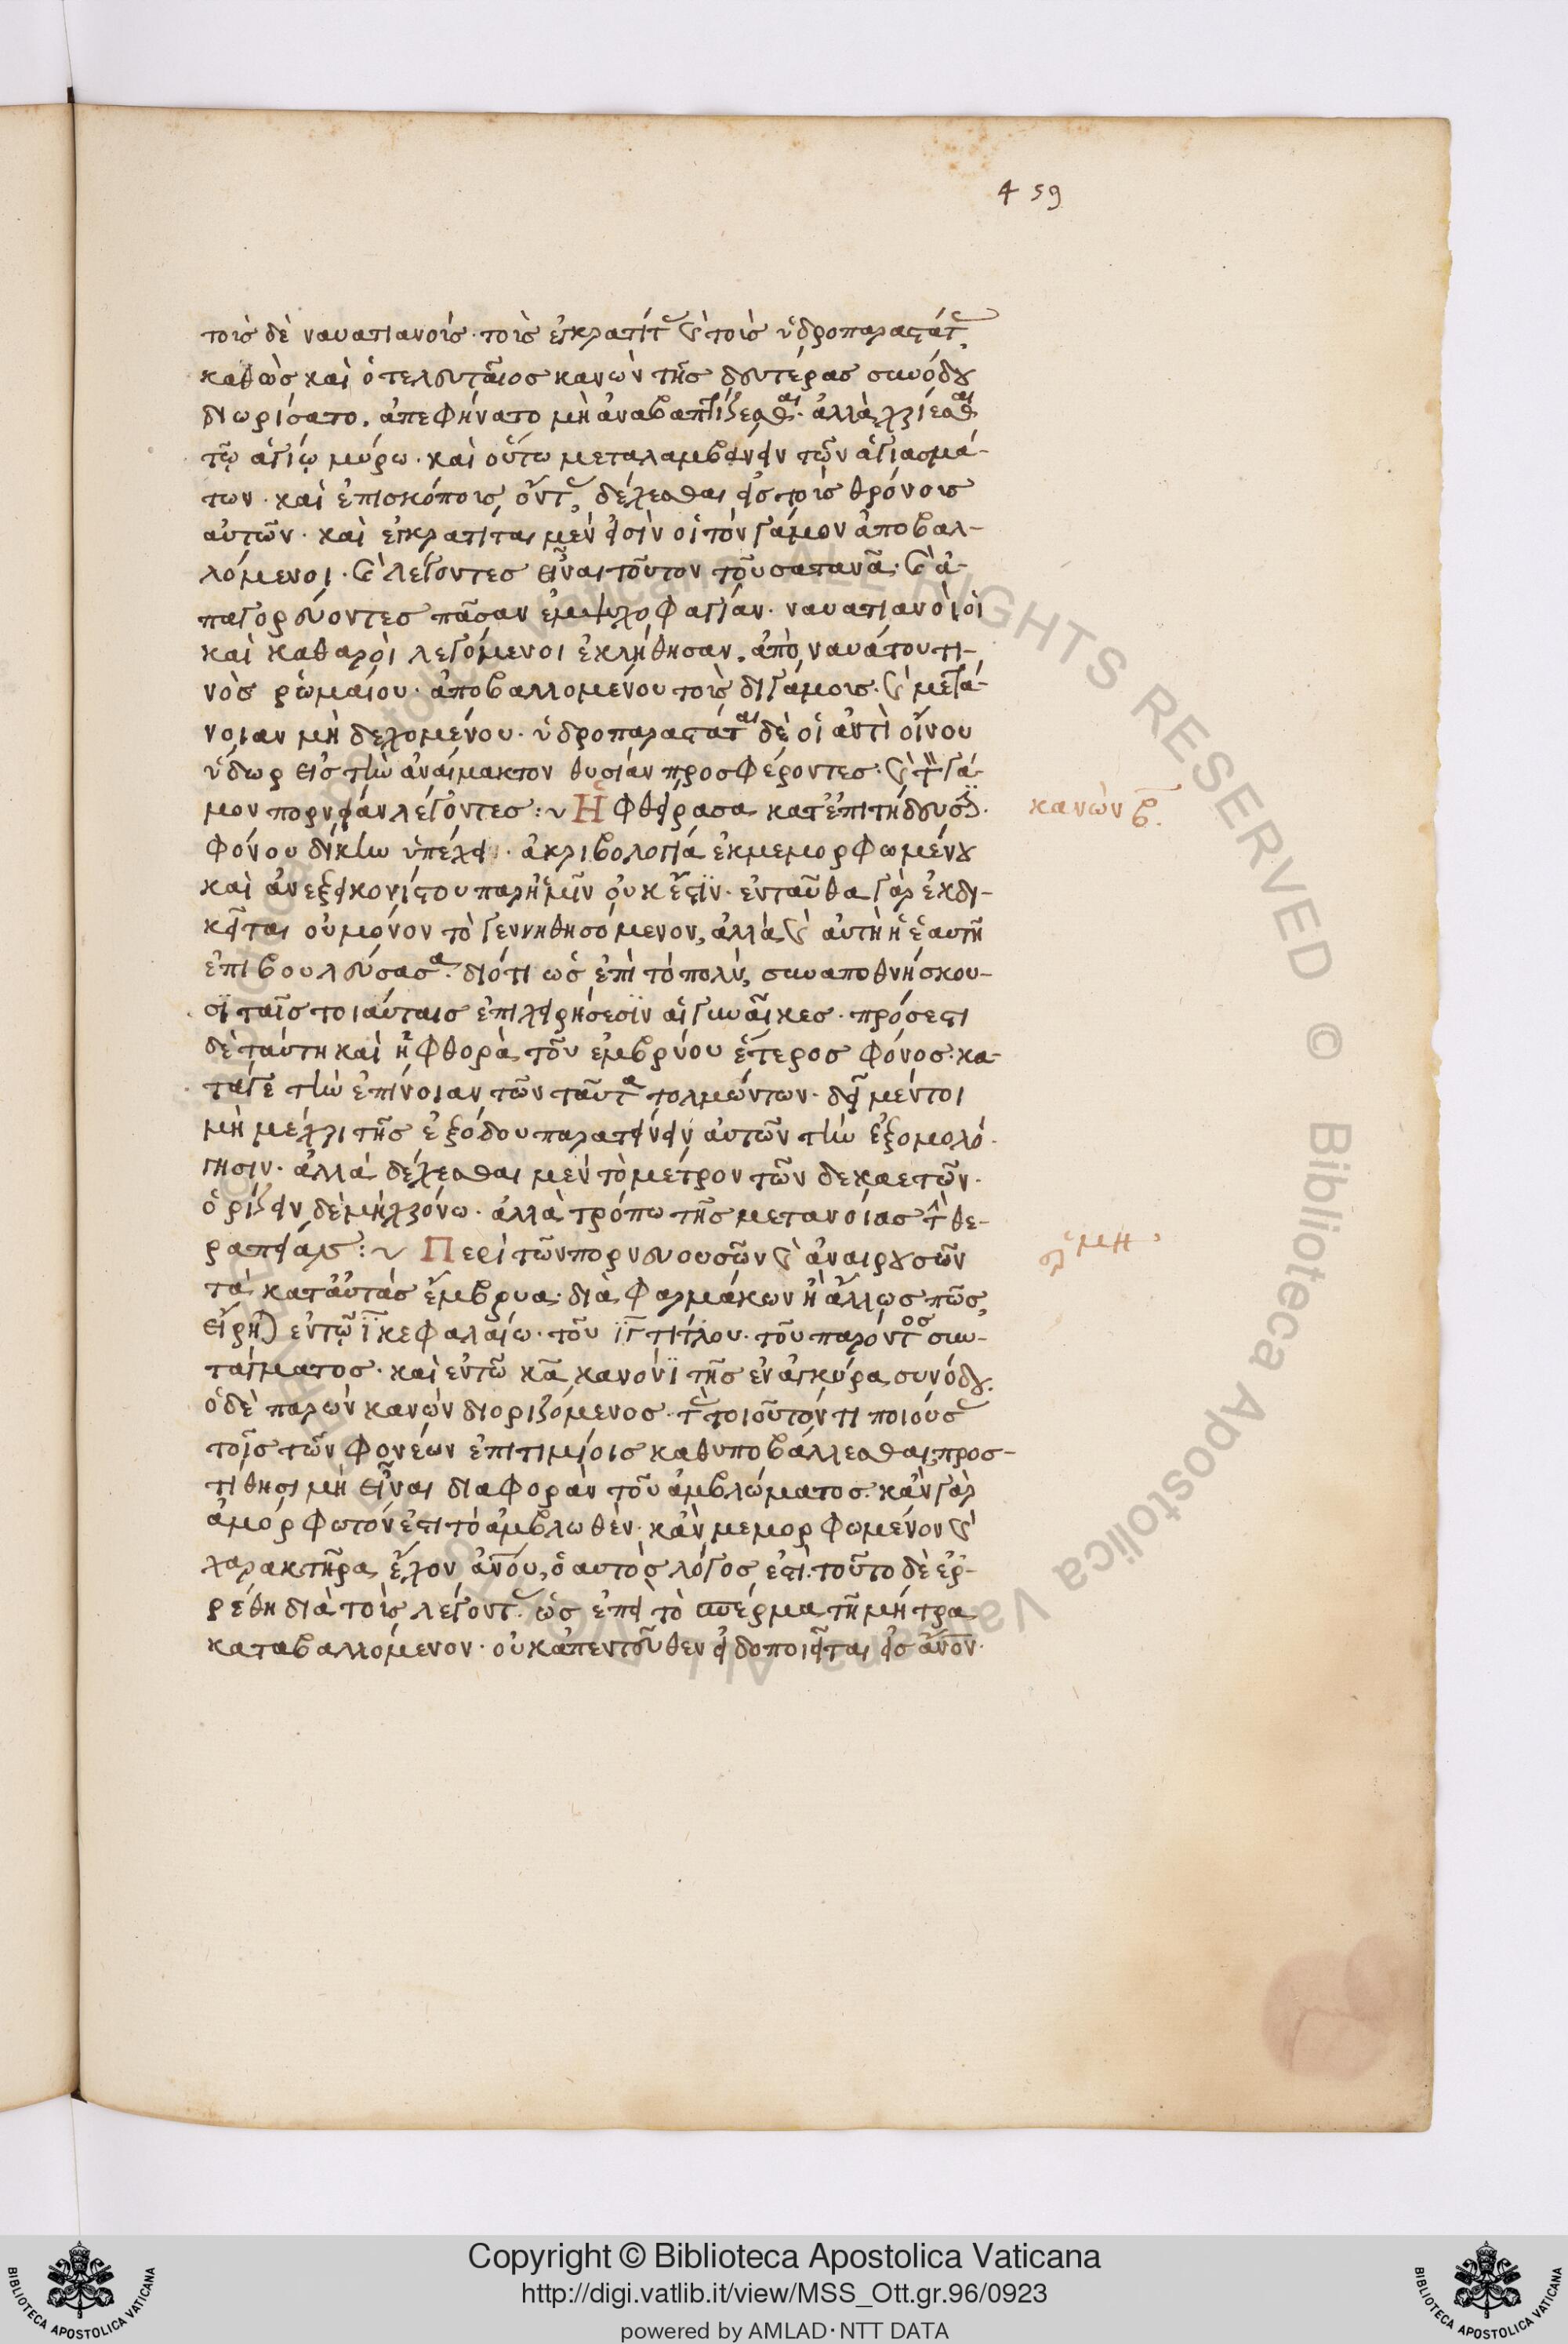 459
τοὺς δὲ ναυατιανοὺς· τοὺς ἐγκρατίτ(ας) καὶ τοὺς ὑδροπαραστάτ(ας),
καθὼς καὶ ὁ τελευταῖος κανὼν τῆς δευτέρας συνόδου
διωρίσατο. ἀπεφήνατο μὴ ἀναβαπτίζεσθαι· ἀλλὰ χρίεσθαι
τῷ ἁγίῳ μύρω· καὶ οὕτω μεταλαμβάνειν τῶν ἁγιασμά-
των· καὶ ἐπισκόπους ὄντ(ας), δέχεσθαι εἰς τοὺς θρόνους
αὐτῶν· καὶ ἐγκρατίται μέν εἰσὶν οἱ τὸν γάμον ἀποβαλ-
λόμενοι· καὶ λέγοντες εἶναι τοῦτον τοῦ σατανᾶ· καὶ ἀ-
παγορεύοντες πᾶσαν ἐμψυχοφαγίαν· ναυατιανοὶ οἱ
καὶ καθαροὶ λεγόμενοι ἐκλήθησαν. ἀπὸ ναυάτου τι-
νὸς ῥωμαίου· ἀποβαλλομένου τοὺς διγάμους· καὶ μετά-
νοιαν μὴ δεχομένου· ὑδροπαραστάται δὲ οἱ ἀντὶ οἴνου
ὕδωρ εἰς τὴν ἀναίμακτον θυσίαν προσφέροντες· καὶ τὸν γά-
μον πορνείαν λέγοντες :~ Ἡ φθείρασα κατ' ἐπιτήδευσιν·
κανὼν β.
φόνου δίκην ὑπέχει· ἀκριβολογία ἐκμεμορφωμένου
καὶ ἀνεξεικονίστου παρ' ἡμῖν οὐκ ἔστιν· ἐνταῦθα γὰρ ἐκδι-
κεῖται οὐ μόνον τὸ γεννηθησόμενον, ἀλλὰ καὶ αὐτὴ ἡ ἑαυτῆ
ἐπιβουλεύσασα· διότι ὡς ἐπὶ τὸ πολὺ, συναποθνήσκου-
σι ταῖς τοιαύταις ἐπιχειρήσεσιν αἱ γυναῖκες· πρόσεστι
δὲ ταύτη καὶ ἡ φθορὰ τοῦ ἐμβρύου ἕτερος φόνος· κα-
τά γε τὴν ἐπίνοιαν τῶν ταῦτα τολμώντων· δεῖ μέντοι
μὴ μέχρι τῆς ἐξόδου παρατείνειν αὐτῶν τὴν ἐξομολό-
γησιν· ἀλλὰ δέχεσθαι μὲν τὸ μέτρον τῶν δεκαετῶν·
ὁρίζειν δὲ μὴ χρόνω· ἀλλὰ τρόπω τῆς μετανοίας τὴν θε-
ραπείαν :~ Περὶ τῶν πορνευουσῶν καὶ ἀναιρουσῶν
τὰ κατ' αὐτὰς ἔμβρυα· διὰ φαρμάκων ἢ ἄλλως πῶς,
εἴρηται ἐν τῷ ϊ κεφαλαίω· τοῦ ιγ τίτλου· τοῦ παρόντος συν-
τάγματος· καὶ ἐν τῶ κα κανόνι τῆς ἐν ἀγκύρα συνόδου.
ὁ δὲ παρὼν κανὼν διοριζόμενος· τὰς τοιοῦτόν τι ποιούσας
τοῖς τῶν φονέων ἐπιτιμίοις καθυποβάλλεσθαι, προσ-
τίθησι μὴ εἶναι διαφορὰν τοῦ ἀμβλώματος· κἂν γὰρ
ἀμόρφωτόν ἐστι τὸ ἀμβλωθὲν· κἂν μεμορφωμένον καὶ
χαρακτῆρα ἔχον ἀνου, ὁ αὐτὸς λόγος ἐστὶ· τοῦτο δὲ ἐρ-
ρέθη διὰ τοὺς λέγοντ(ας)· ὡς ἐπεὶ τὸ σπέρμα τῆ μήτρα
καταβαλλόμενον· οὐκ ἀπεντεῦθεν εἰδοποιεῖται εἰς ἄνον·
Copyright © Biblioteca Apostolica Vaticana
http://digi.vatlib.it/view/MSS_Ott.gr.96/0923
powered by AMLAD·NTT DATA
BIBLIOTECA APOSTOLICA VATICANA
BIBLIOTECA APOSTOLICA VATICANA
ALL RIGHTS RESERVED © Biblioteca Apostolica Vaticana